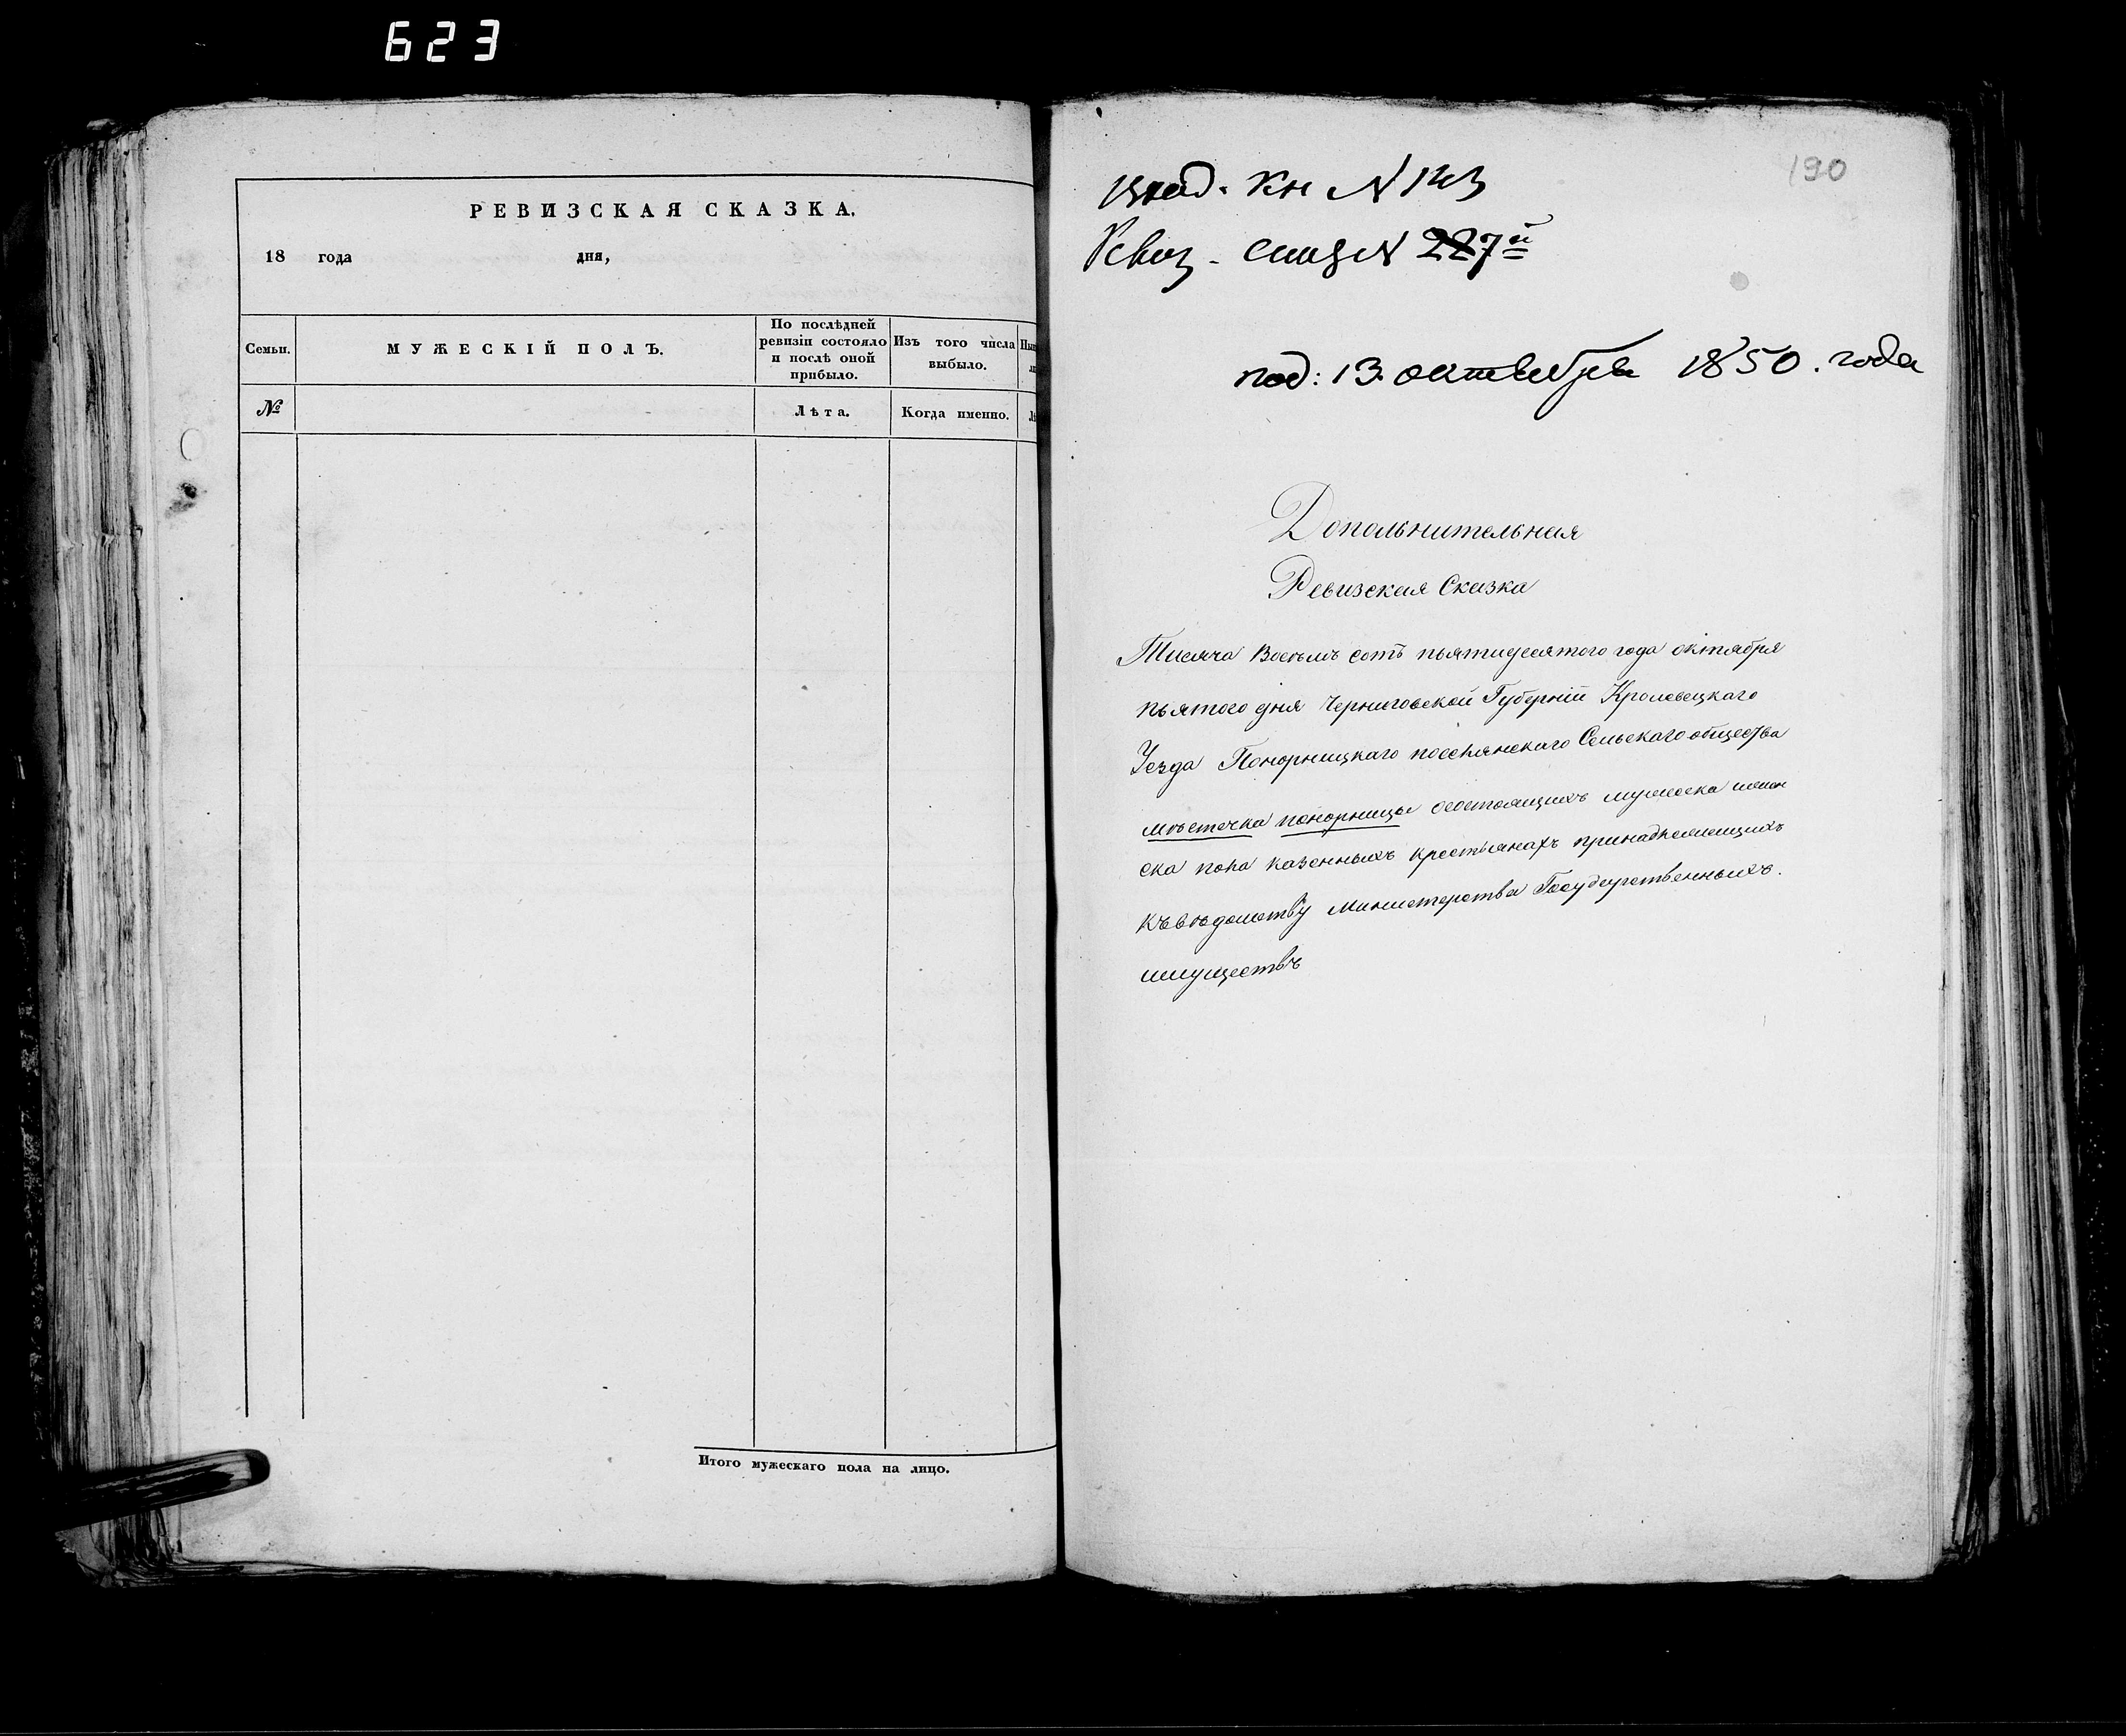 623
РЕВИЗСКАЯ СКАЗКА.
18 года дня,
Семьи.
МУЖЕСКІЙ ПОЛЪ.
По послѣдней
ревизіи состояло
и послѣ оной
прибыло.
Изъ того числа
выбыло.
№
Лѣта.
Когда именно.
Итого мужескаго пола на лицо.
190
Кн N 123
Ревиз. N 227й
под: 13. октября 1850. года
Допольнительная
Ревизская Сказка
Тисяча Восемъ сотъ пьятидесятого года октября
пьятого дня Черниговской Губерніи Кролевецкаго
Уезда Понорницкаго поселянскаго Сельскаго общества
мѣстечка понорницы состоящихъ мужеска женс
ска пола казенныхъ крестьянахъ принадлежещихъ
Къ вѣдомству Министерства Государственныхъ.
имуществъ